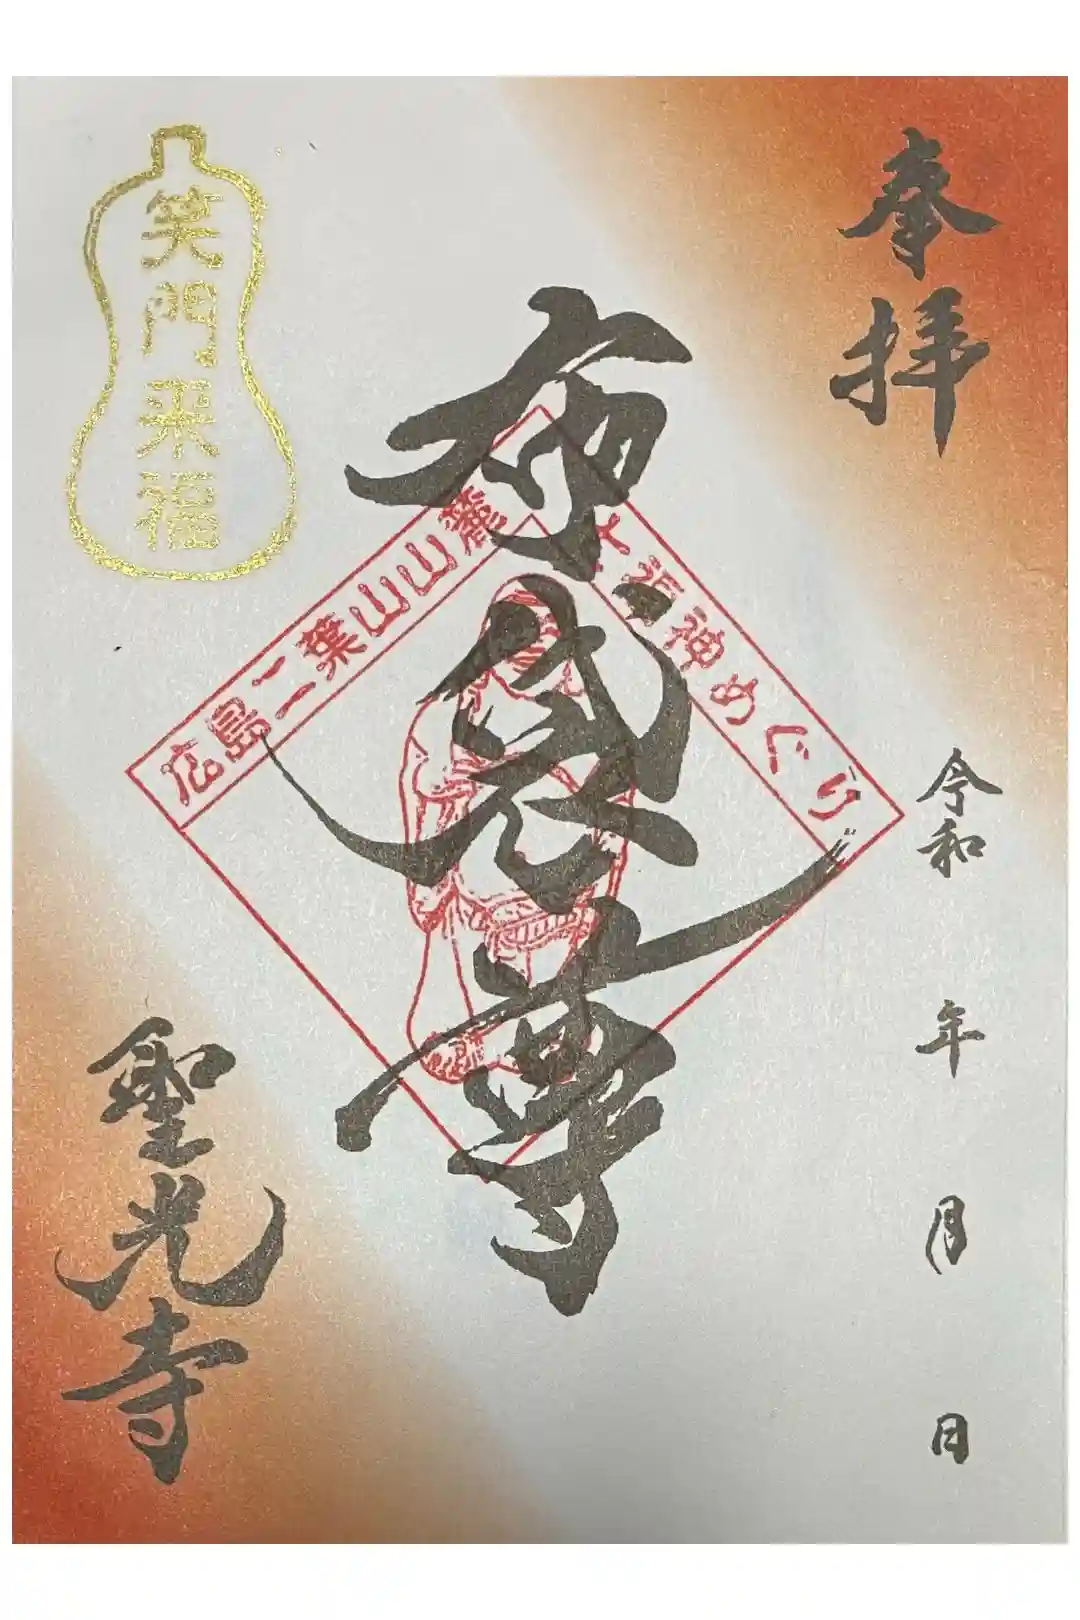 奉拝
令和 年 月 日
布袋尊
広島二葉山山麓
七福神めぐり
笑門来福
聖光寺